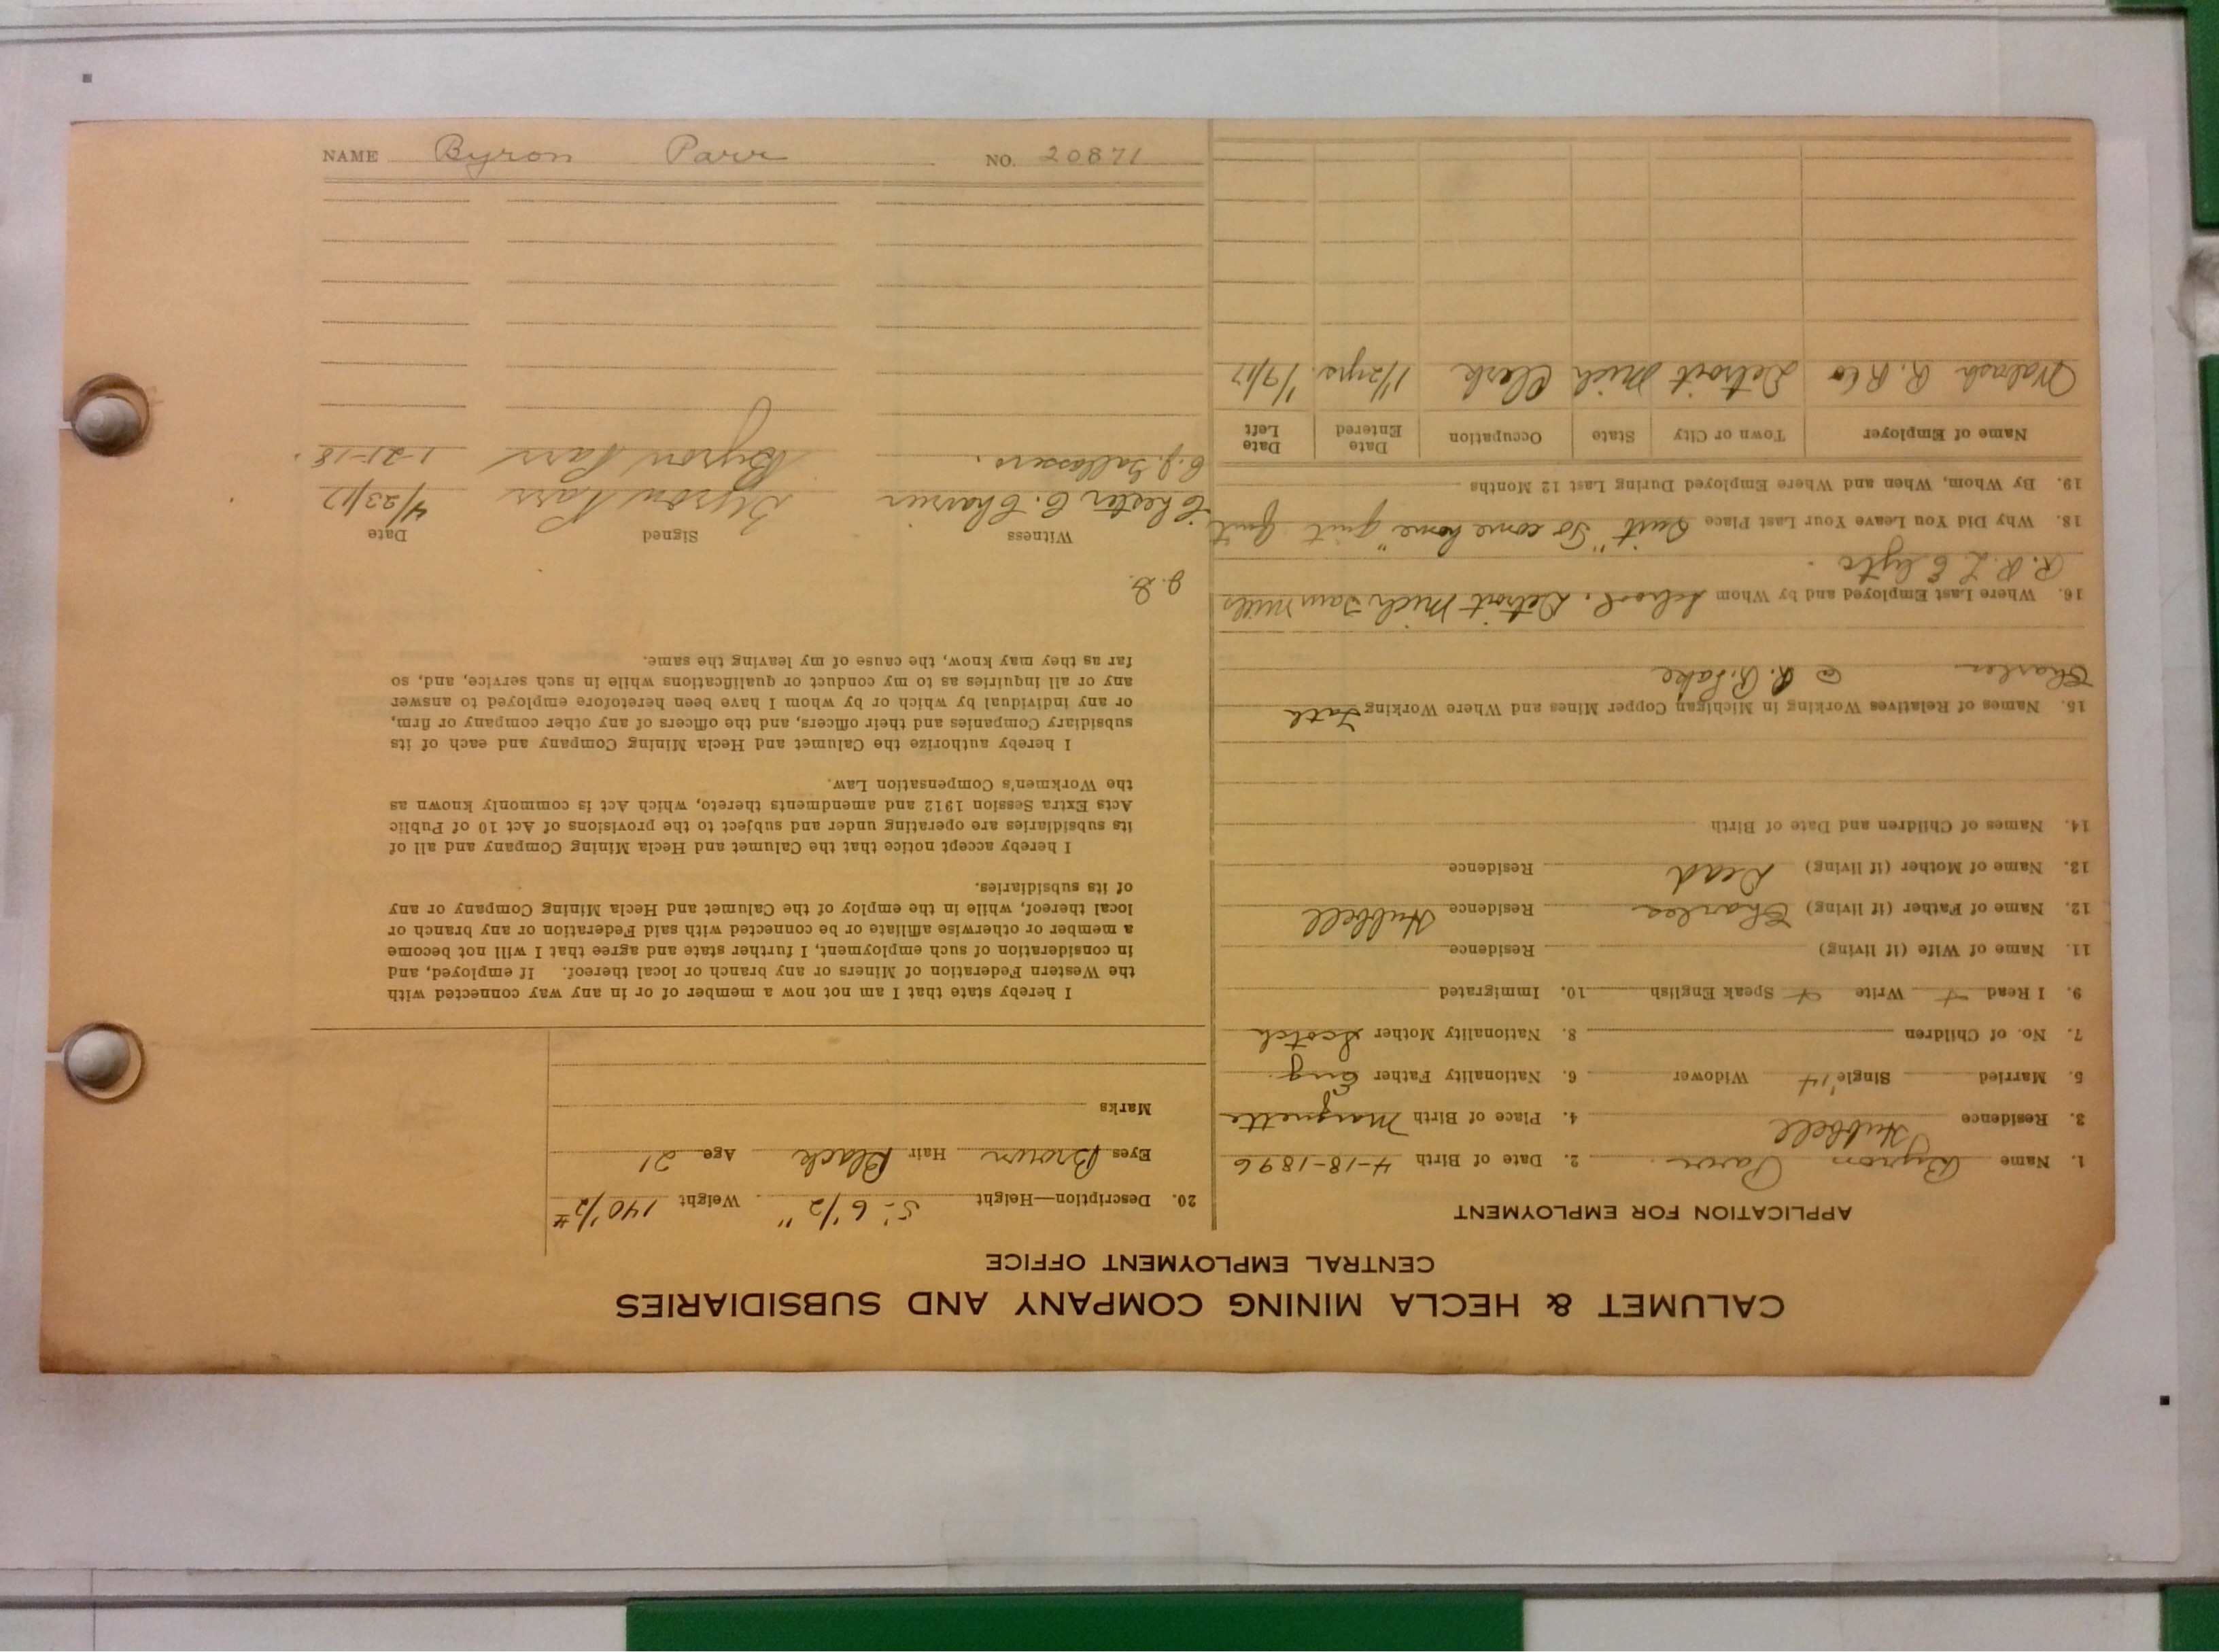 CALUMET & HECLA MINING COMPANY AND SUBSIDIARIES
CENTRAL EMPLOYMENT OFFICE
APPLICATION FOR EMPLOYMENT
1. Name Byron Parr 2. Date of Birth 4-18-1896
3. Residence Hubbell 4. Place of Birth Marquette
5. Married Single Widower 6. Nationality Father Eng.
7. No. of Children 8. Nationality Mother Scotch
9. I Read + Write + Speak English 10. Immigrated
11. Name of Wife (if living) Residence
12. Name of Father (if living) Charles Residence Hubbell
13. Name of Mother (if living) Dead Residence
14. Names of Children and Date of Birth
15. Names of Relatives Working in Michigan Copper Mines and Where Working Fath
Charles R. R. Lake
16. Where Last Employed and by Whom School. Detroit Mich
18. Why Did You Leave Your Last Place Quit "To come home" quit
19. By Whom, When and Where Employed During Last 12 Months
Name of Employer Town or City State Occupation Date Entered Date Left
Wabash R. R Co Detroit Mich Clerk 1 1/2 yrs. 1/9/17
20. Description—Height 5'- 6 1/2" Weight 140 1/2 #
Eyes Brown Hair Black Age 21
Marks
I hereby state that I am not now a member of or in any way connected with
the Western Federation of Miners or any branch or local thereof. If employed, and
in consideration of such employment, I further state and agree that I will not become
a member or otherwise affiliate or be connected with said Federation or any branch or
local thereof, while in the employ of the Calumet and Hecla Mining Company or any
of its subsidiaries.
I hereby accept notice that the Calumet and Hecla Mining Company and all of
its subsidiaries are operating under and subject to the provisions of Act 10 of Public
Acts Extra Session 1912 and amendments thereto, which Act is commonly known as
the Workmen's Compensation Law.
I hereby authorize the Calumet and Hecla Mining Company and each of its
subsidiary Companies and their officers, and the officers of any other company or firm,
or any individual by which or by whom I have been heretofore employed to answer
any or all inquiries as to my conduct or qualifications while in such service, and, so
far as they may know, the cause of my leaving the same.
Witness Signed Date
Chester C. Byron Parr 4/23/17
Byron Parr 1-21-18
NAME Byron Parr NO. 20871